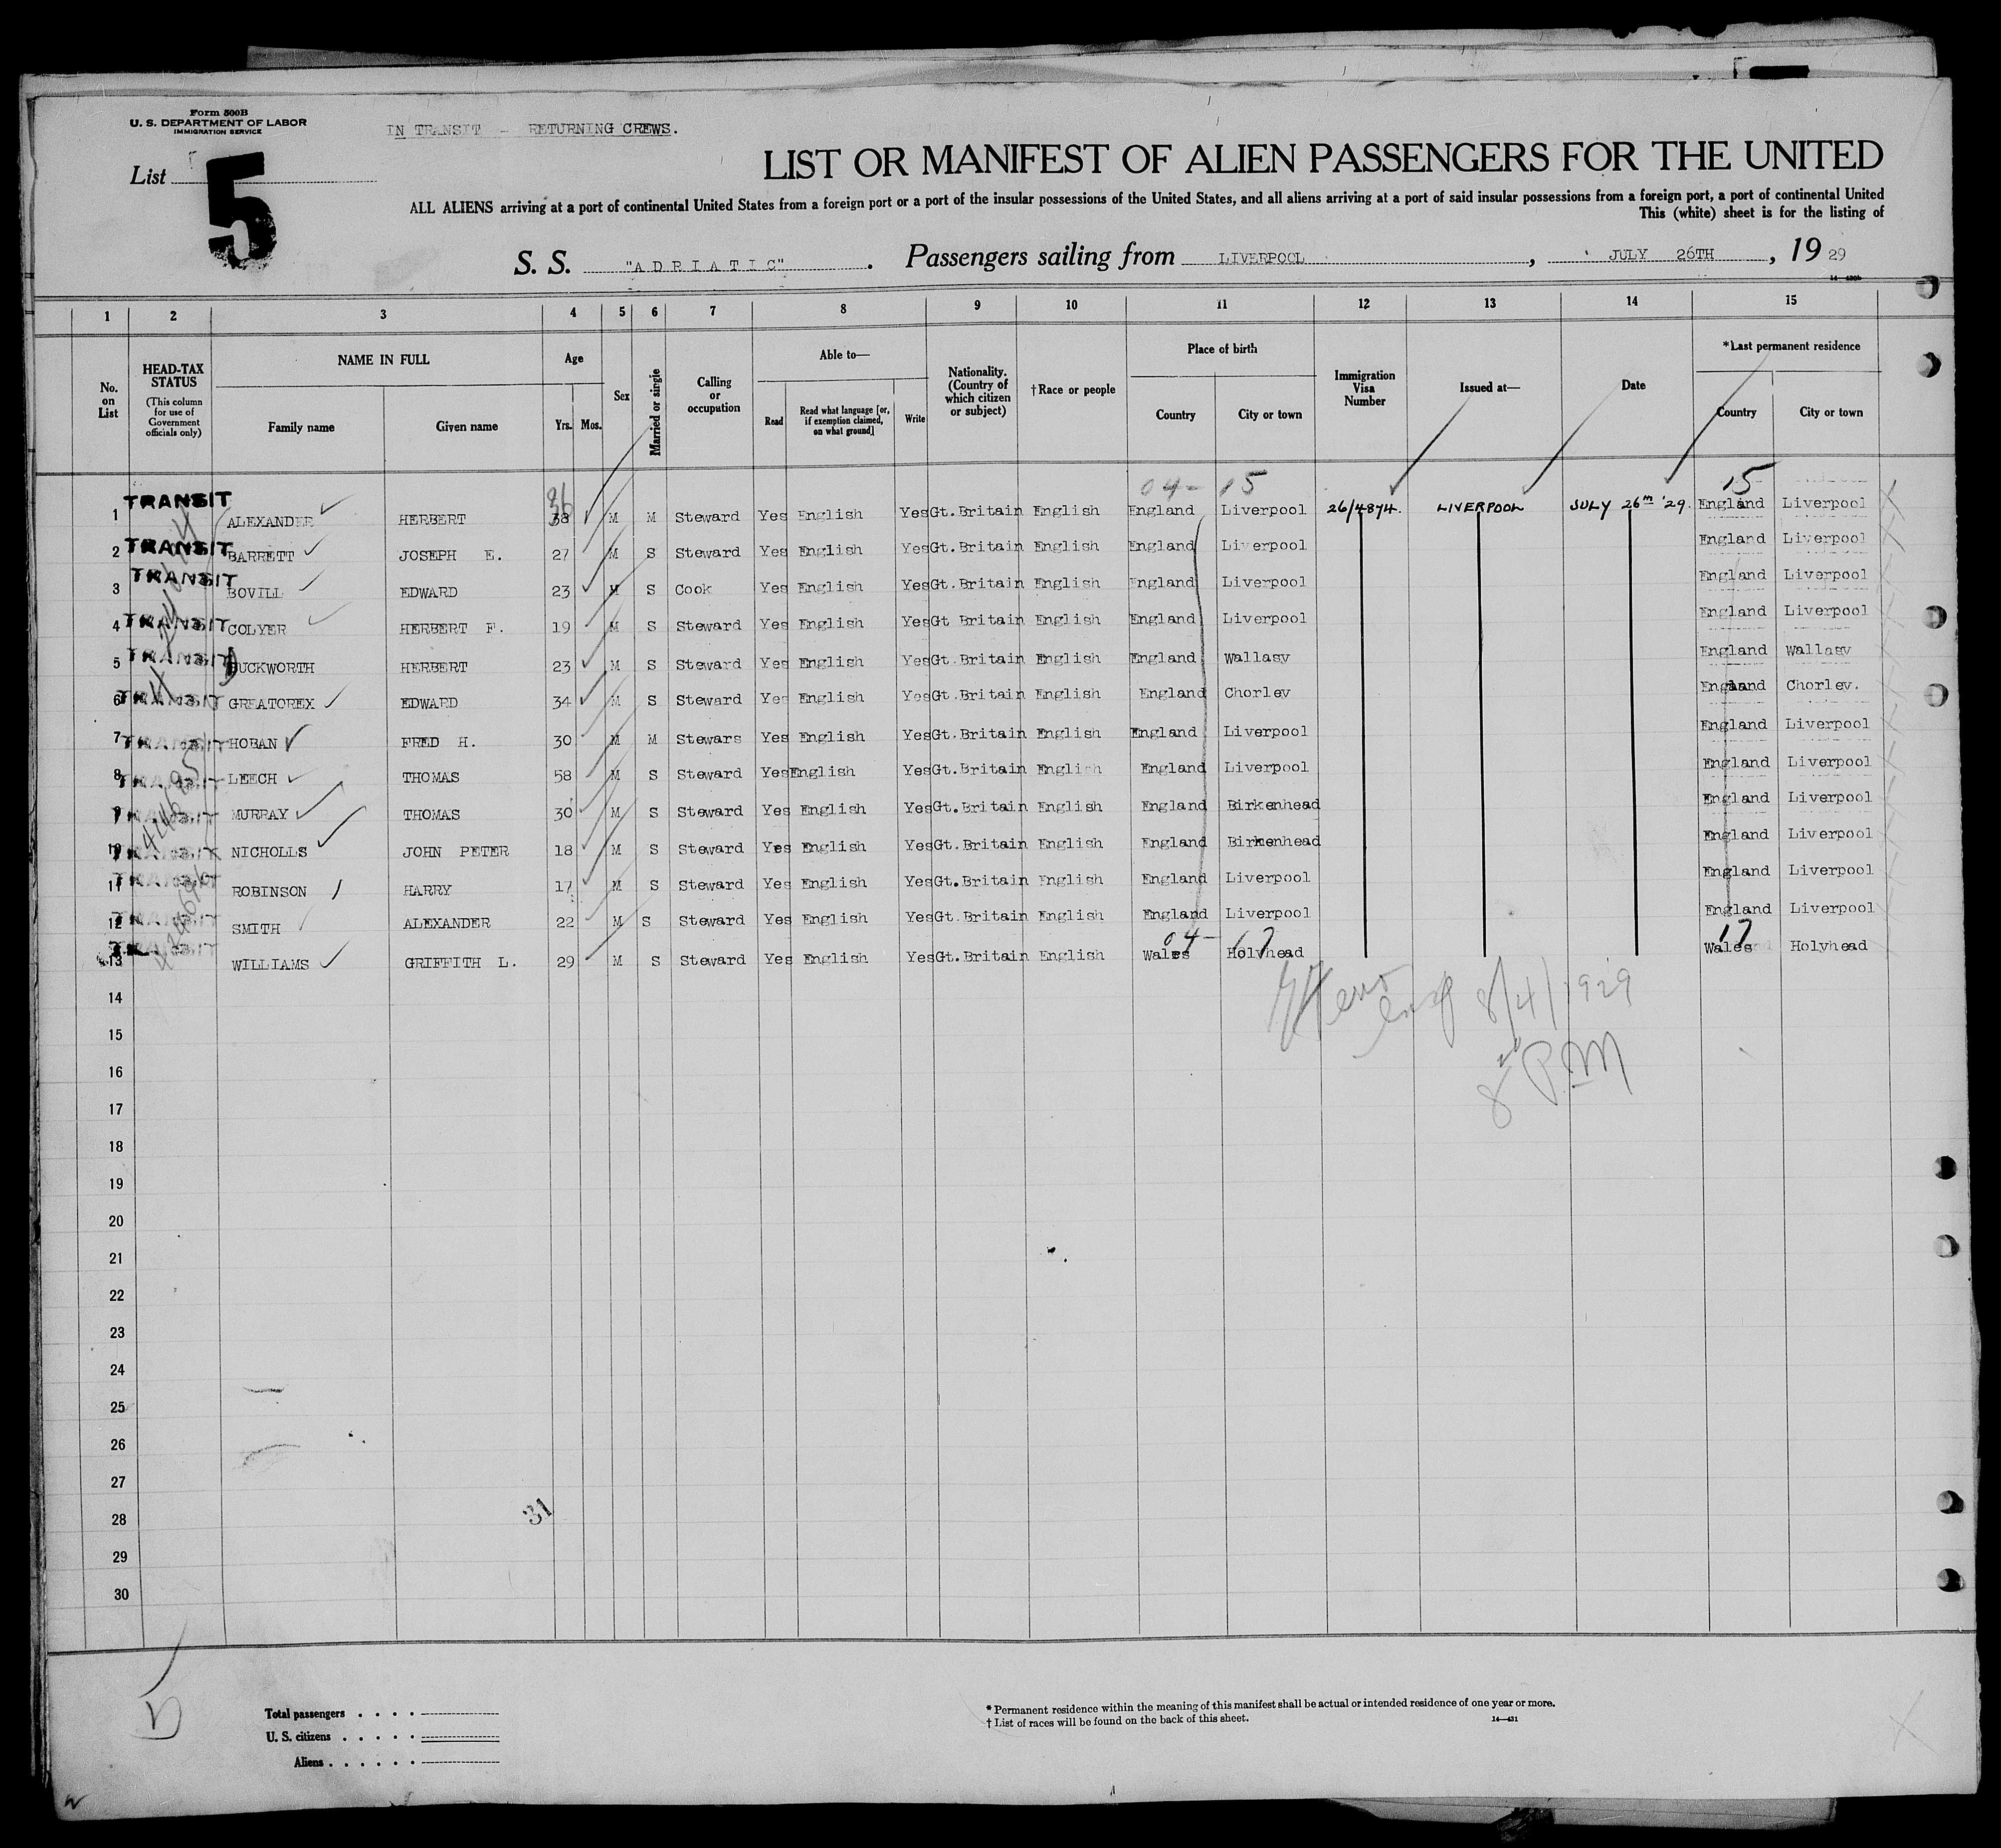 Form 500B
U. S. DEPARTMENT OF LABOR
IMMIGRATION SERVICE
IN TRANSIT - RETURNING CREWS.
List 5
LIST OR MANIFEST OF ALIEN PASSENGERS FOR THE UNITED
ALL ALIENS arriving at a port of continental United States from a foreign port or a port of the insular possessions of the United States, and all aliens arriving at a port of said insular possessions from a foreign port, a port of continental United
This (white) sheet is for the listing of
S. S. "ADRIATIC". Passengers sailing from LIVERPOOL, JULY 26TH, 19 29
1 2 3 4 5 6 7 8 9 10 11 12 13 14 15
No. on List
HEAD-TAX STATUS (This column for use of Government officials only)
NAME IN FULL
Family name Given name
Age
Yrs. Mos.
Sex
Married or single
Calling or occupation
Able to—
Read Read what language [or, if exemption claimed, on what ground] Write
Nationality. (Country of which citizen or subject)
†Race or people
Place of birth
Country City or town
Immigration Visa Number
Issued at—
Date
*Last permanent residence
Country City or town
04- 15 15
36
1 TRANSIT ALEXANDER HERBERT 38 M M Steward Yes English Yes Gt.Britain English England Liverpool 26/4874. LIVERPOOL JULY 26TH '29. England Liverpool
2 TRANSIT BARRETT JOSEPH E. 27 M S Steward Yes English Yes Gt.Britain English England Liverpool England Liverpool
3 TRANSIT BOVILL EDWARD 23 M S Cook Yes English Yes Gt.Britain English England Liverpool England Liverpool
4 TRANSIT COLYER HERBERT F. 19 M S Steward Yes English Yes Gt Britain English England Liverpool England Liverpool
5 TRANSIT DUCKWORTH HERBERT 23 M S Steward Yes English Yes Gt.Britain English England Wallasy England Wallasy
6 TRANSIT GREATOREX EDWARD 34 M S Steward Yes English Yes Gt.Britain English England Chorley England Chorley.
7 TRANSIT HOBAN FRED H. 30 M M Stewars Yes English Yes Gt.Britain English England Liverpool England Liverpool
8 TRANSIT LEECH THOMAS 58 M S Steward Yes English Yes Gt.Britain English England Liverpool England Liverpool
9 TRANSIT MURRAY THOMAS 30 M S Steward Yes English Yes Gt.Britain English England Birkenhead England Liverpool
10 TRANSIT NICHOLLS JOHN PETER 18 M S Steward Yes English Yes Gt.Britain English England Birkenhead England Liverpool
11 TRANSIT ROBINSON HARRY 17 M S Steward Yes English Yes Gt.Britain English England Liverpool England Liverpool
12 TRANSIT SMITH ALEXANDER 22 M S Steward Yes English Yes Gt.Britain English England Liverpool England Liverpool
04- 17 17
13 TRANSIT WILLIAMS GRIFFITH L. 29 M S Steward Yes English Yes Gt.Britain English Wales Holyhead Wales Holyhead
14
8/4/1929
15
16
8 PM
17
18
19
20
21
22
23
24
25
26
27
28
31
29
30
Total passengers
U. S. citizens
Aliens
* Permanent residence within the meaning of this manifest shall be actual or intended residence of one year or more.
† List of races will be found on the back of this sheet.
14—431